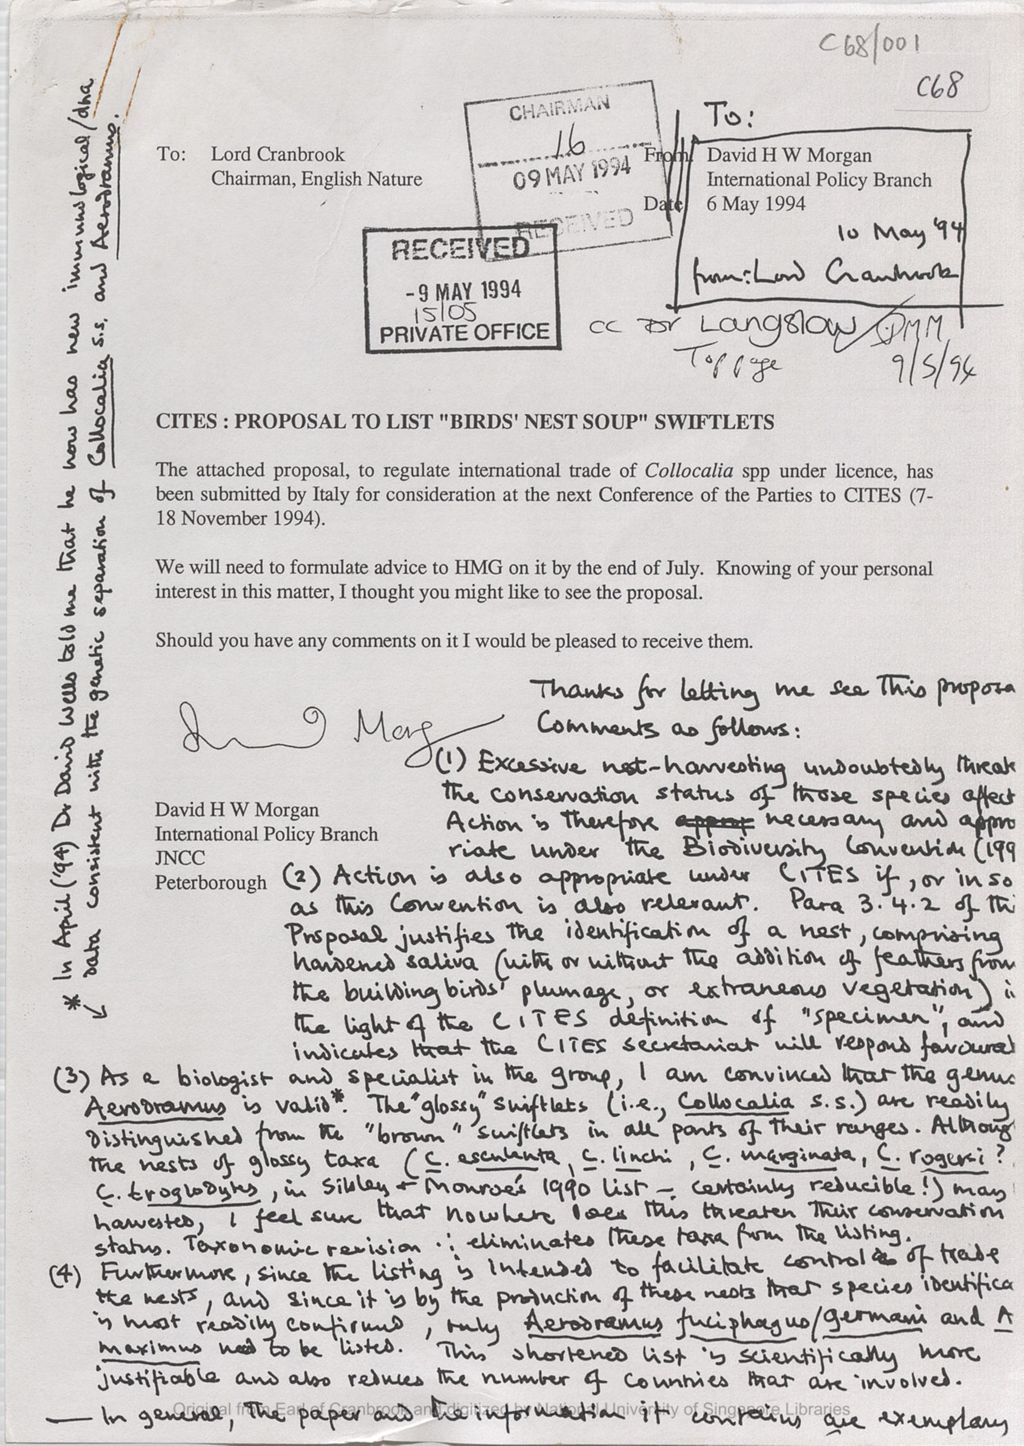 C68/001
C68
To:
To: Lord Cranbrook
Chairman, English Nature
CHAIRMAN
16
09 MAY 1994
RECEIVED
From: David H W Morgan
International Policy Branch
Date 6 May 1994
10 May '94
from: Lord Cranbrook
RECEIVED
-9 MAY 1994
15/05
PRIVATE OFFICE
cc Dr Langslow DMM
Top page 9/5/94
CITES : PROPOSAL TO LIST "BIRDS' NEST SOUP" SWIFTLETS
The attached proposal, to regulate international trade of Collocalia spp under licence, has
been submitted by Italy for consideration at the next Conference of the Parties to CITES (7-
18 November 1994).
We will need to formulate advice to HMG on it by the end of July. Knowing of your personal
interest in this matter, I thought you might like to see the proposal.
Should you have any comments on it I would be pleased to receive them.
David H W Morgan
International Policy Branch
JNCC
Peterborough
Thanks for letting me see this proposa
Comments as follows:
(1) Excessive nest-harvesting undoubtedly threat
the conservation status of those species affect
Action is therefore necessary and appro
riate under the Biodiversity Convention (199
(2) Action is also appropriate under CITES if, or in so
as this Convention is also relevant. Para 3.4.2 of th
Proposal justifies the identification of a nest, comprising
hardened saliva (with or without the addition of feathers from
the building birds' plumage, or extraneous vegetation) i
the light of the CITES definition of "specimen", and
indicates that the CITES secretariat will respond favourabl
(3) As a biologist and specialist in the group, I am convinced that the genu
Aerodramus is valid*. The "glossy" swiftlets (i.e., Collocalia s.s.) are readily
distinguished from the "brown" swiftlets in all parts of their ranges. Althoug
the nests of glossy taxa (C. esculenta, C. linchi, C. marginata, C. rogersi?
C. troglodytes, in Sibley + Monroe's 1990 list - certainly reducible!) may
harvested, I feel sure that nowhere does this threaten their conservation
status. Taxonomic revision ∴ eliminates these taxa from the listing.
(4) Furthermore, since the listing is intended to facilitate control of trade
the nests, and since it is by the production of these nests that species identifica
is most readily confirmed, only Aerodramus fuciphagus/germani and A
maximus need to be listed. This shortened list is scientifically more
justifiable and also reduces the number of Countries that are involved.
— In general, the paper and the information it contains are exemplary
* In April ('94) Dr David Wells told me that he now has new immunological/dna
data consistent with the genetic separation of Collocalia s.s. and Aerodramus.
Original from Earl of Cranbrook and digitized by National University of Singapore Libraries